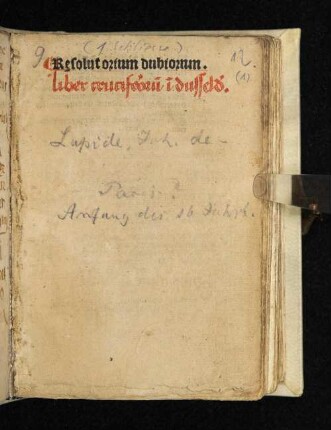 9
12.
(1)
Resolutorium dubiorum.
liber cruciferorū ī dusseld.
Lapide, Joh. de -
Paris?
Anfang des 16. Jahrh.